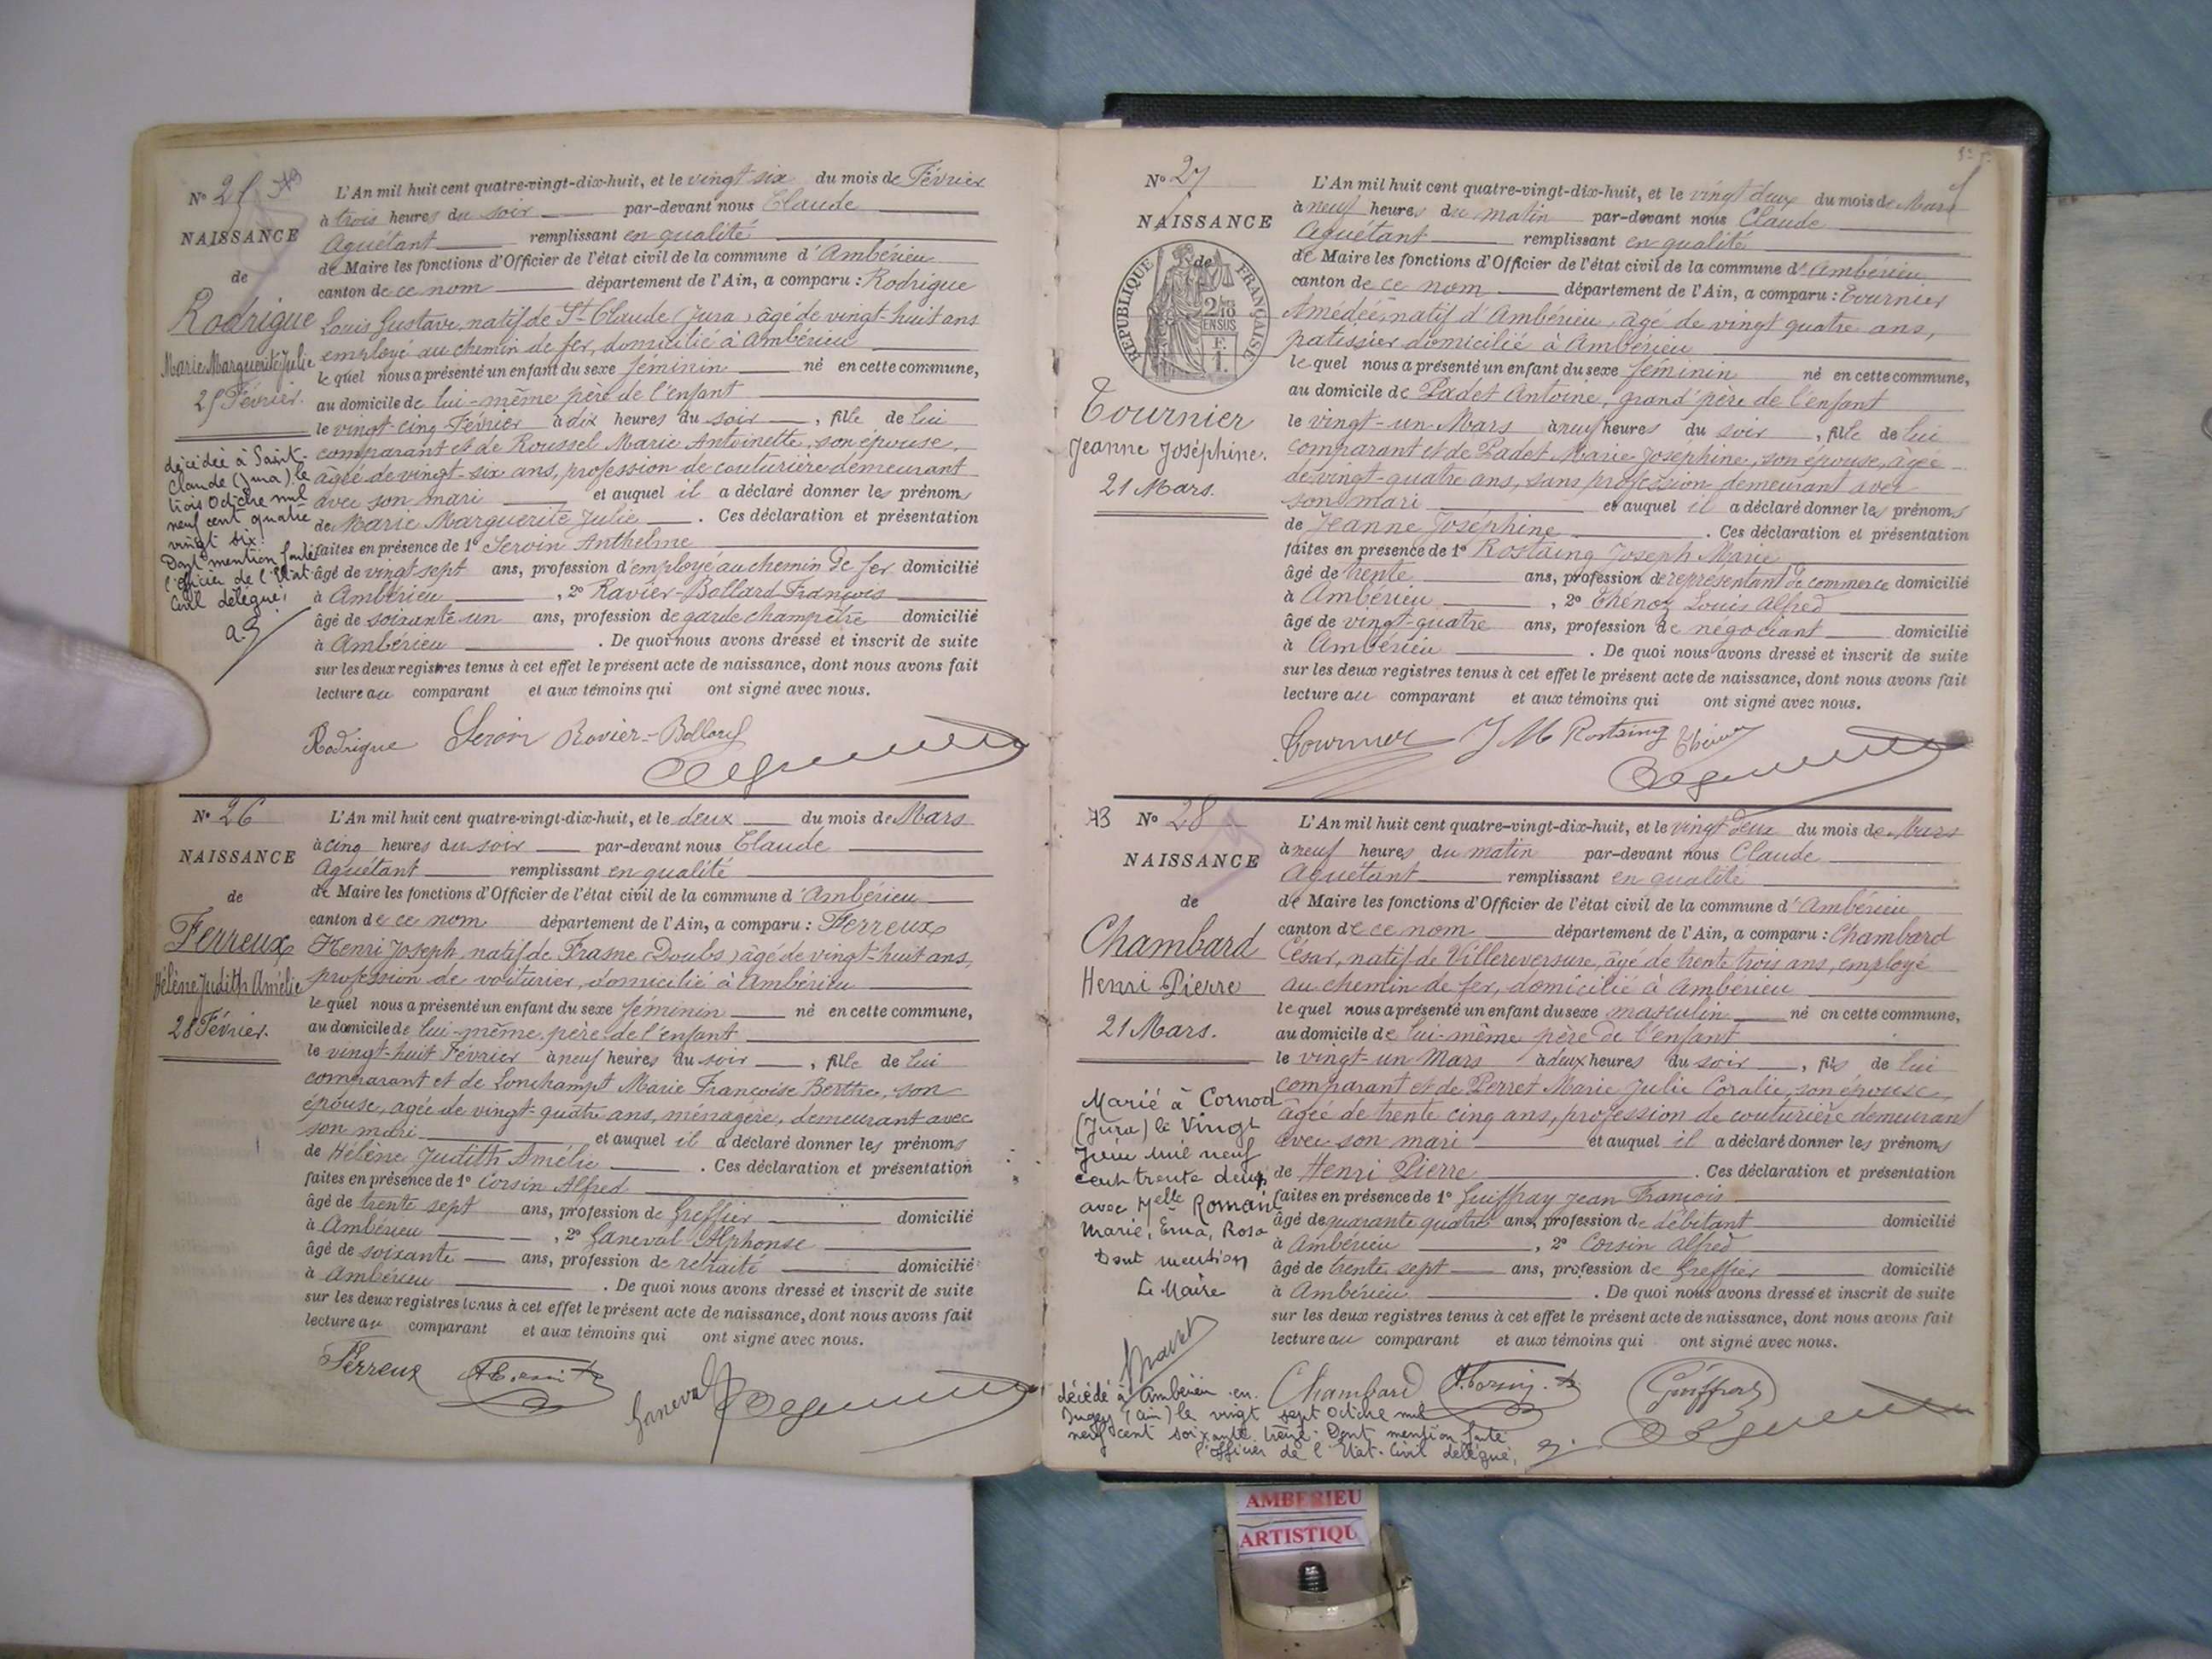 N° 25
NAISSANCE
de
Rodrigue
Marie Marguerite Julie
25 Février.
décédée à Saint-
Claude (Jura) le
trois Octobre mil
neuf cent quatre
vingt six.
Dont mention faite
l'officier de l'Etat
Civil délégué,
L'An mil huit cent quatre-vingt-dix-huit, et le vingt six du mois de Février
à trois heures du soir par-devant nous Claude
Aguétant remplissant en qualité
de Maire les fonctions d'Officier de l'état civil de la commune d'Ambérieu
canton de ce nom département de l'Ain, a comparu : Rodrigue
Louis Gustave, natif de St Claude (Jura) âgé de vingt-huit ans
employé au chemin de fer, domicilié à Ambérieu
lequel nous a présenté un enfant du sexe féminin né en cette commune,
au domicile de lui-même père de l'enfant
le vingt-cinq Février à dix heures du soir, fille de lui
comparant et de Roussel Marie Antoinette, son épouse,
âgée de vingt-six ans, profession de couturière demeurant
avec son mari et auquel il a déclaré donner les prénoms
de Marie Marguerite Julie. Ces déclaration et présentation
faites en présence de 1° Servin Anthelme
âgé de vingt sept ans, profession d'employé au chemin de fer domicilié
à Ambérieu, 2° Ravier-Bollard François
âgé de soixante un ans, profession de garde champêtre domicilié
à Ambérieu. De quoi nous avons dressé et inscrit de suite
sur les deux registres tenus à cet effet le présent acte de naissance, dont nous avons fait
lecture au comparant et aux témoins qui ont signé avec nous.
Rodrigue Servin Ravier-Bollard
N° 26
NAISSANCE
de
Ferreux
Hélène Judith Amélie
28 Février.
L'An mil huit cent quatre-vingt-dix-huit, et le deux du mois de Mars
à cinq heures du soir par-devant nous Claude
Aguétant remplissant en qualité
de Maire les fonctions d'Officier de l'état civil de la commune d'Ambérieu
canton de ce nom département de l'Ain, a comparu : Ferreux
Henri Joseph, natif de Frasne (Doubs) âgé de vingt-huit ans,
profession de voiturier, domicilié à Ambérieu
lequel nous a présenté un enfant du sexe féminin né en cette commune,
au domicile de lui-même, père de l'enfant
le vingt-huit Février à neuf heures du soir, fille de lui
comparant et de Lonchampt Marie Françoise Berthe, son
épouse, agée de vingt-quatre ans, ménagère, demeurant avec
son mari et auquel il a déclaré donner les prénoms
de Hélène Judith Amélie. Ces déclaration et présentation
faites en présence de 1° Corsin Alfred
âgé de trente sept ans, profession de Greffier domicilié
à Ambérieu, 2° Ganeval Alphonse
âgé de soixante ans, profession de retraité domicilié
à Ambérieu. De quoi nous avons dressé et inscrit de suite
sur les deux registres tenus à cet effet le présent acte de naissance, dont nous avons fait
lecture au comparant et aux témoins qui ont signé avec nous.
Ferreux
Ganeval
N° 27
NAISSANCE
de
RÉPUBLIQUE FRANÇAISE
2/10
EN SUS
Tournier
Jeanne Joséphine.
21 Mars.
L'An mil huit cent quatre-vingt-dix-huit, et le vingt deux du mois de Mars
à neuf heures du matin par-devant nous Claude
Aguétant remplissant en qualité
de Maire les fonctions d'Officier de l'état civil de la commune d'Ambérieu
canton de ce nom département de l'Ain, a comparu : Tournier
Amédée, natif d'Ambérieu, âgé de vingt quatre ans,
patissier domicilié à Ambérieu
lequel nous a présenté un enfant du sexe féminin né en cette commune,
au domicile de Padet Antoine, grand père de l'enfant
le vingt-un Mars à neuf heures du soir, fille de lui
comparant et de Padet Marie Joséphine, son épouse, âgée
de vingt-quatre ans, sans profession demeurant avec
son mari et auquel il a déclaré donner les prénoms
de Jeanne Joséphine. Ces déclaration et présentation
faites en présence de 1° Rostaing Joseph Marie
âgé de trente ans, profession de représentant de commerce domicilié
à Ambérieu, 2° Thénoz Louis Alfred
âgé de vingt-quatre ans, profession de négociant domicilié
à Ambérieu. De quoi nous avons dressé et inscrit de suite
sur les deux registres tenus à cet effet le présent acte de naissance, dont nous avons fait
lecture au comparant et aux témoins qui ont signé avec nous.
Tournier J M Rostaing
N° 28
NAISSANCE
de
Chambard
Henri Pierre
21 Mars.
Marié à Cornod
(Jura) le Vingt
Juin mil neuf
cent trente deux
avec Melle Romand
Marie, Erna, Rosa
Dont mention
Le Maire
L'An mil huit cent quatre-vingt-dix-huit, et le vingt deux du mois de Mars
à neuf heures du matin par-devant nous Claude
Aguétant remplissant en qualité
de Maire les fonctions d'Officier de l'état civil de la commune d'Ambérieu
canton de ce nom département de l'Ain, a comparu : Chambard
César, natif de Villereversure, âgé de trente trois ans, employé
au chemin de fer, domicilié à Ambérieu
lequel nous a présenté un enfant du sexe masculin né en cette commune,
au domicile de lui-même père de l'enfant
le vingt-un Mars à deux heures du soir, fils de lui
comparant et de Perret Marie Julie Coralie, son épouse,
âgée de trente cinq ans, profession de couturière demeurant
avec son mari et auquel il a déclaré donner les prénoms
de Henri Pierre. Ces déclaration et présentation
faites en présence de 1° Guiffray Jean François
âgé de quarante quatre ans, profession de débitant domicilié
à Ambérieu, 2° Corsin Alfred
âgé de trente sept ans, profession de Greffier domicilié
à Ambérieu. De quoi nous avons dressé et inscrit de suite
sur les deux registres tenus à cet effet le présent acte de naissance, dont nous avons fait
lecture au comparant et aux témoins qui ont signé avec nous.
Chambard A. Corsin Guiffray
décédé à Ambérieu en
Bugey (Ain) le vingt sept Octobre mil
neuf cent soixante treize. Dont mention faite
l'officier de l'Etat-Civil délégué,
AMBERIEU
ARTISTIQU